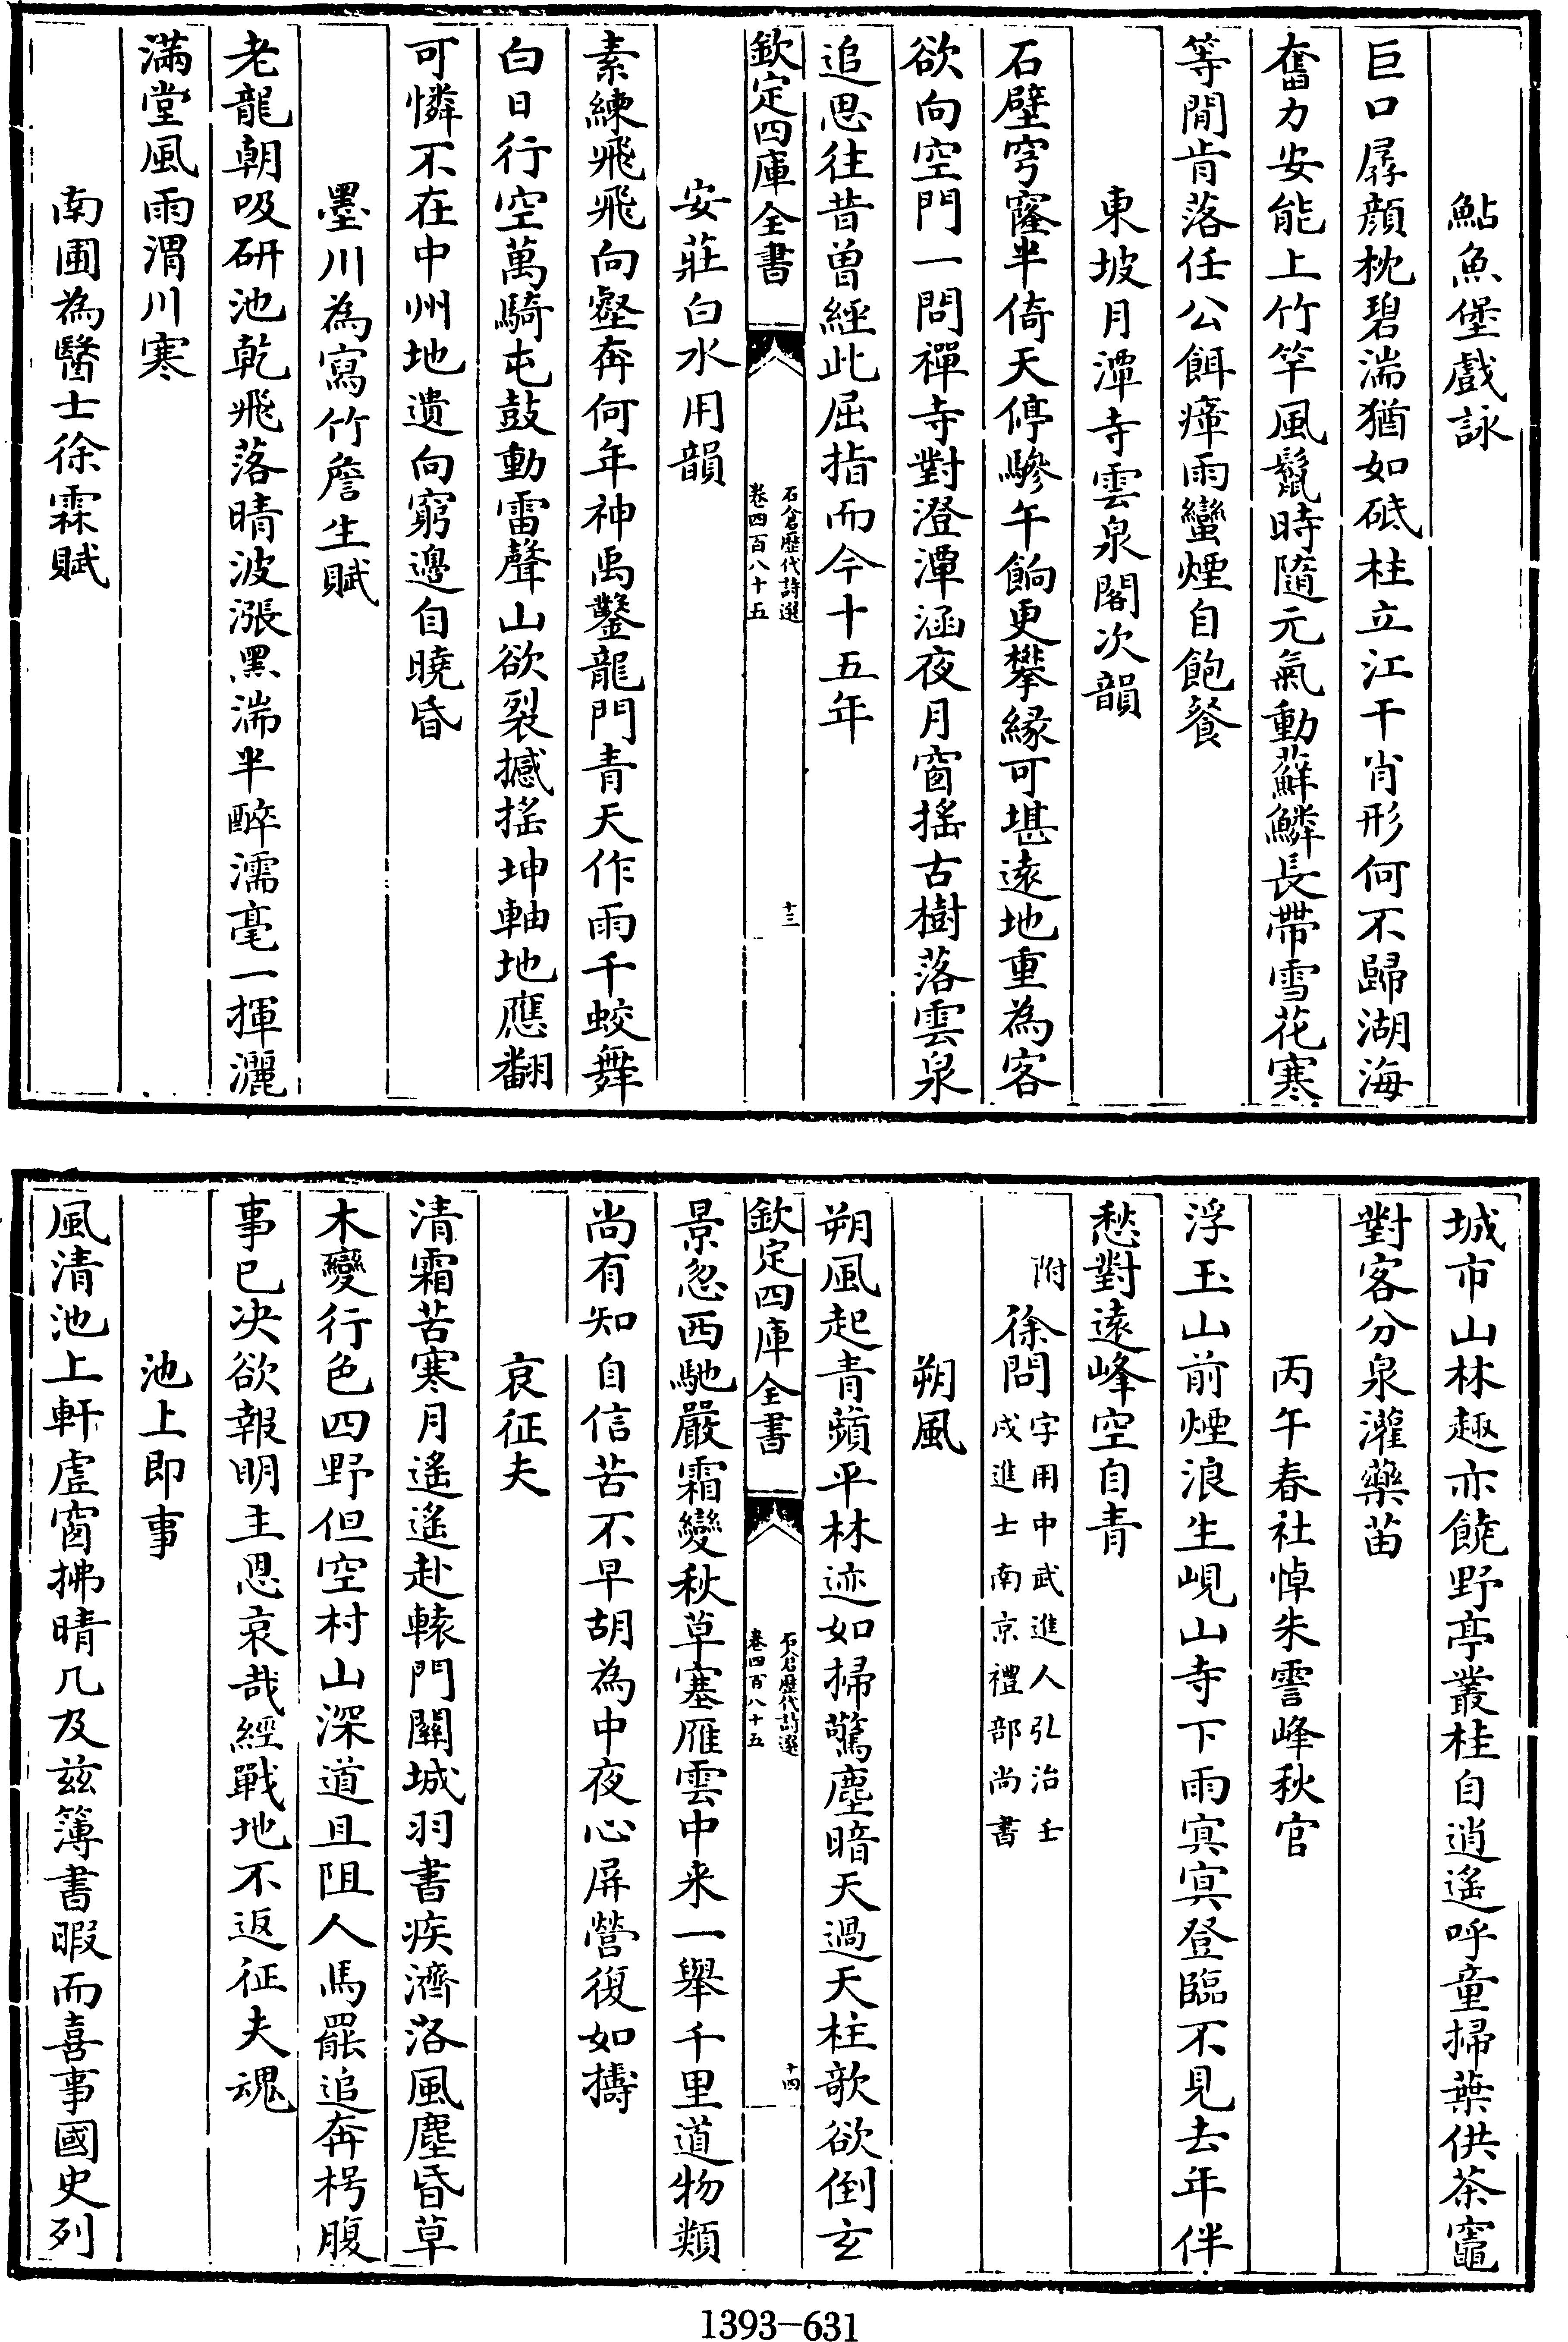 鮎魚堡戲詠
巨口孱顏枕碧湍猶如砥柱立江干肖形何不歸湖海
奮力安能上竹竿風鬣時隨元氣動蘚鱗長帶雪花寒
等閒肯落任公餌瘴雨蠻煙自飽餐
東坡月潭寺雲泉閣次韻
石壁穹窿半倚天停驂午餉更攀緣可堪遠地重為客
欲向空門一問禪寺對澄潭涵夜月窗搖古樹落雲泉
追思往昔曾經此屈指而今十五年
欽定四庫全書
石倉歷代詩選
卷四百八十五
十三
安莊白水用韻
素練飛飛向壑奔何年神禹鑿龍門青天作雨千蛟舞
白日行空萬騎屯鼓動雷聲山欲裂撼搖坤軸地應翻
可憐不在中州地遺向窮邊自曉昏
墨川為寫竹詹生賦
老龍朝吸研池乾飛落晴波漲黑湍半醉濡毫一揮灑
滿堂風雨渭川寒
南圃為醫士徐霖賦
城市山林趣亦饒野亭叢桂自逍遙呼童掃葉供茶竈
對客分泉灌藥苗
丙午春社悼朱雪峰秋官
浮玉山前煙浪生峴山寺下雨寞寞登臨不見去年伴
愁對遠峰空自青
附
徐問
字用中武進人弘治壬
戌進士南京禮部尚書
朔風
朔風起青蘋平林迹如掃驚塵暗天過天柱欹欲倒玄
欽定四庫全書
石倉歷代詩選
卷四百八十五
十四
景忽西馳嚴霜變秋草塞雁雲中来一舉千里道物類
尚有知自信苦不早胡為中夜心屏營復如擣
哀征夫
清霜苦寒月遙遙赴轅門關城羽書疾濟洛風塵昏草
木變行色四野但空村山深道且阻人馬罷追奔枵腹
事已决欲報明主恩哀哉經戰地不返征夫魂
池上即事
風清池上軒虛窗拂晴几及兹簿書暇而喜事國史列
1393-631